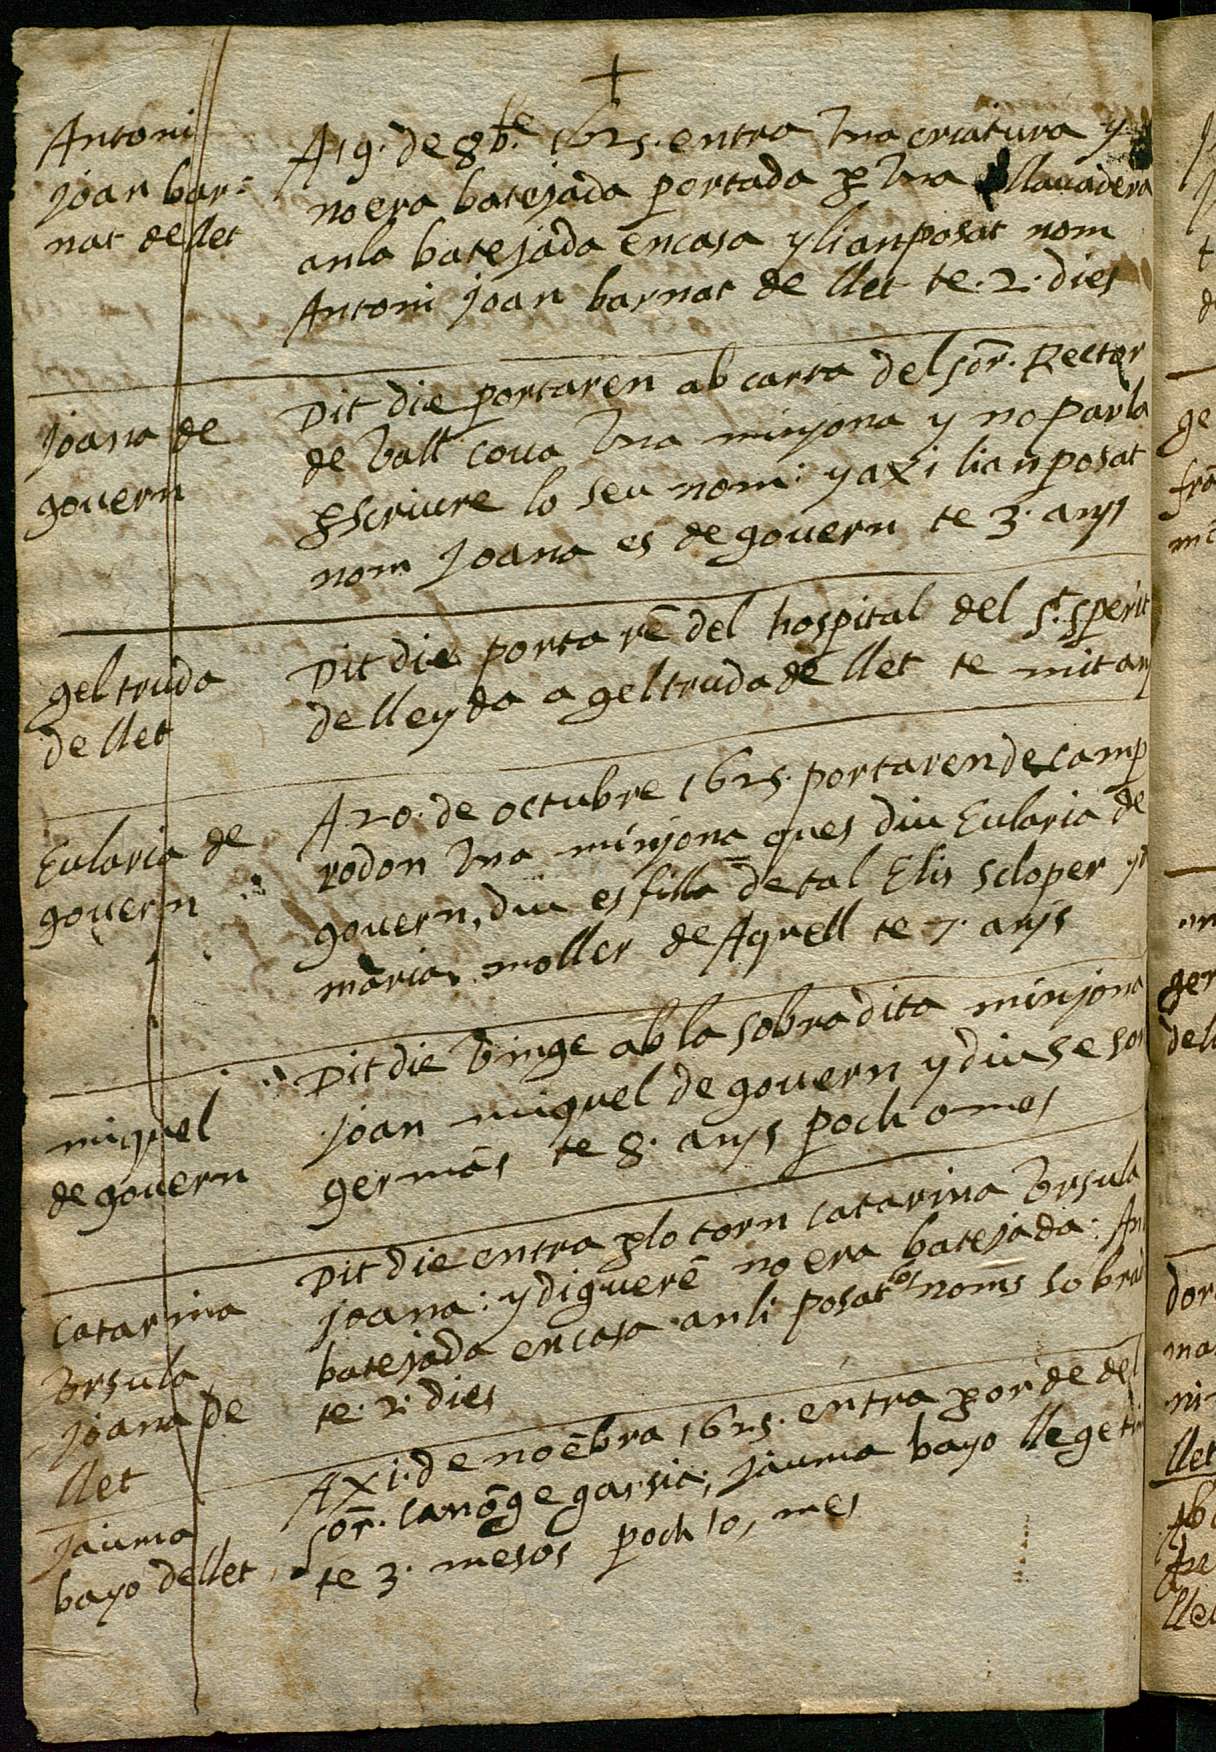 +
Antoni
Joan bar=
nat de llet
A 19. de 8bre. 1625. entra una criatura y
no era batejada portada p una llauadera
an la batejada en casa y li an posat nom
Antoni Joan barnat de llet te. 2. dies
Joana de
gouern
Dit die portaren ab carta del sor. Rector
de Vall coua una minyona y no parla
p scriure lo seu nom: y axi li an posat
nom Joana es de gouern te 3. anys
geltruda
de llet
Dit die portarē del hospital del st. sperit
de lleyda a geltruda de llet te mit any
Eularia de
gouern
A 20. de octubre 1625. portaren de camp
rodon una minyona ques diu Eularia de
gouern, diu es filla de tal Elis scloper y
maria moller de Aquell te 7. anys
miquel
de gouern
Dit die Vinge ab la sobradita minyona
Joan miquel de gouern y diuse son
germās te 8. anys poch o mes
Catarina
Ursula
Joana de
llet
Dit die entra p lo torn Catarina Ursula
Joana: y diguerē no era batejada: An
batejada en casa an li posat los noms sobra
te. 2. dies
Jauma
bayo de llet
A XI. de noēbra 1625. entra p orde del
sor. Canōge garsia, Jauma bayo llegeti
te 3. mesos poch o, mes